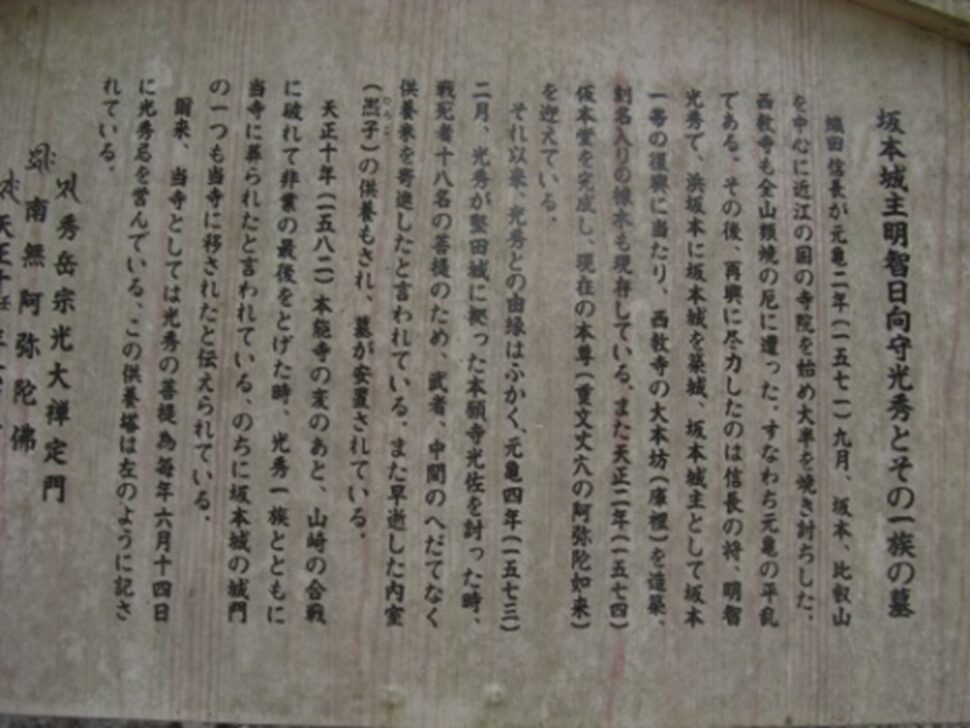 坂本城主明智日向守光秀とその一族の墓
織田信長が元亀二年(一五七一)九月、坂本、比叡山
を中心に近江の国の寺院を始め大半を焼き討ちした。
西教寺も全山類焼の厄に遭った。すなわち元亀の平乱
である。その後、再興に尽力したのは信長の将、明智
光秀で、浜坂本に坂本城を築城、坂本城主として坂本
一帯の復興に当たり、西教寺の大本坊(庫裡)を造築、
刻名入りの棟木も現存している。また天正二年(一五七四)
仮本堂を完成し、現在の本尊(重文丈六の阿弥陀如来)
を迎えている。
それ以来、光秀との由縁はふかく、元亀四年(一五七三)
二月、光秀が堅田城に拠った本願寺光佐を討った時、
戦死者十八名の菩提のため、武者、中間のへだてなく
供養米を寄進したと言われている。また早逝した内室
(煕子)の供養もされ、墓が安置されている。
天正十年(一五八二)本能寺の変のあと、山崎の合戦
に破れて非業の最後をとげた時、光秀一族とともに
当寺に葬られたと言われている。のちに坂本城の城門
の一つも当寺に移されたと伝えられている。
爾来、当寺としては光秀の菩提為毎年六月十四日
に光秀忌を営んでいる。この供養塔は左のように記さ
れている。
秀岳宗光大禅定門
南無阿弥陀佛
天正十